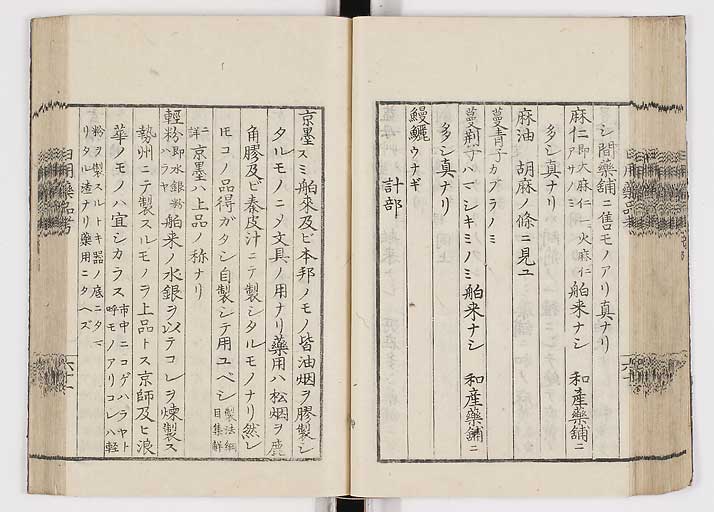 シ間藥舗ニ售モノアリ真ナリ
麻仁 即大麻仁一名火麻仁 アサノミ 舶來ナシ 和產藥舗ニ
多シ真ナリ
麻油 胡麻ノ條ニ見ユ
蔓青子 カブラノミ
蔓荆子 ハマシキミノミ 舶來ナシ 和產藥舗ニ
多シ真ナリ
鰻鱺 ウナギ
計部
京墨 スミ 舶來及ビ本邦ノモノ皆油烟ヲ膠製シ
タルモノニメ文具ノ用ナリ藥用ハ松烟ヲ鹿
角膠及ビ秦皮汁ニテ製シタルモノナリ然レ
𪜈コノ品得ガタシ自製シテ用ユベシ 製法綱目集解
ニ詳 京墨ハ上品ノ称ナリ
輕粉 即水銀粉 ハラヤ 舶來ノ水銀ヲ以テコレヲ煉製ス
勢州ニテ製スルモノヲ上品トス京師及ヒ浪
華ノモノハ宜シカラス 市中ニコゲハラヤト呼モノアリコレハ輕
粉ヲ製スルトキ器ノ底ニタマリタル渣ナリ藥用ニタヘズ